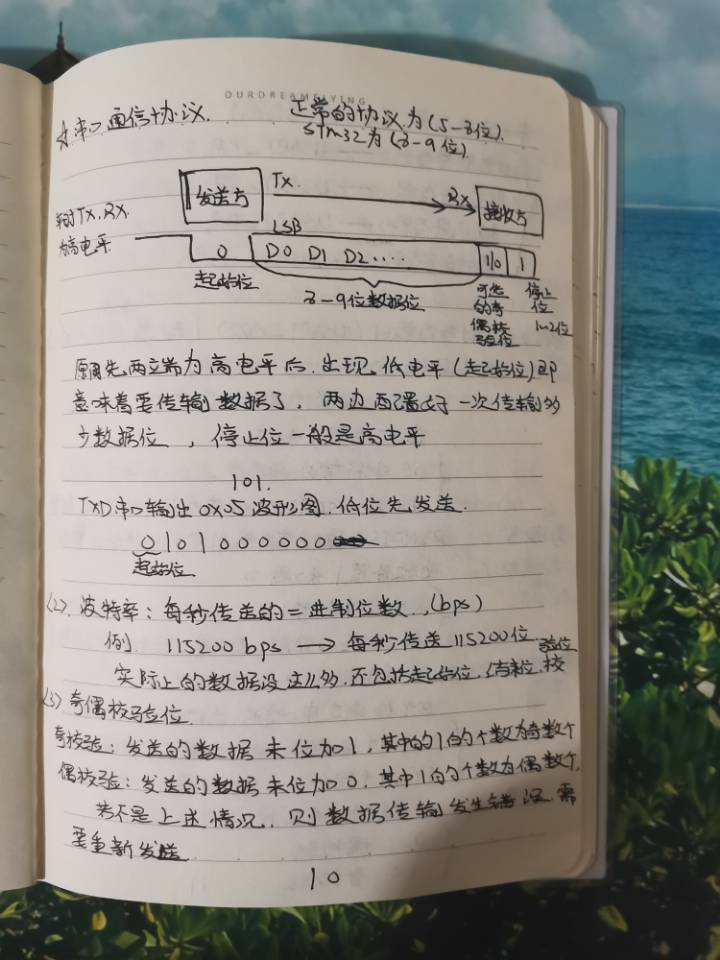 OURDREAMFLYING
串口通信协议.
正常的协议为(5-8位).
STM32为(8-9位).
发送方 Tx. Rx 接收方
Tx, Rx
为高电平
LSB
0 D0 D1 D2.... 1/0 1
起始位
8-9位数据位
可选的奇偶校验位
停止位
1~2位
先两立端为高电平后.出现低电平(起始位)即
意味着要传输数据了,两边配置好一次传输多
少数据位,停止位一般是高电平
101.
TXD串口输出0x05波形图.低位先发送.
0101000000
起始位
(2).波特率:每秒传送的二进制位数.,(bps)
例 115200bps → 每秒传送115200位
实际上的数据没这么多.不包括起始位,停止位,校
验位
(3)奇偶校验位.
奇校验:发送的数据末位加1,其中的1的个数为奇数个
偶校验:发送的数据末位加0,其中1的个数为偶数个.
若不是上述情况.则数据传输发生错误.需
要重新发送
10